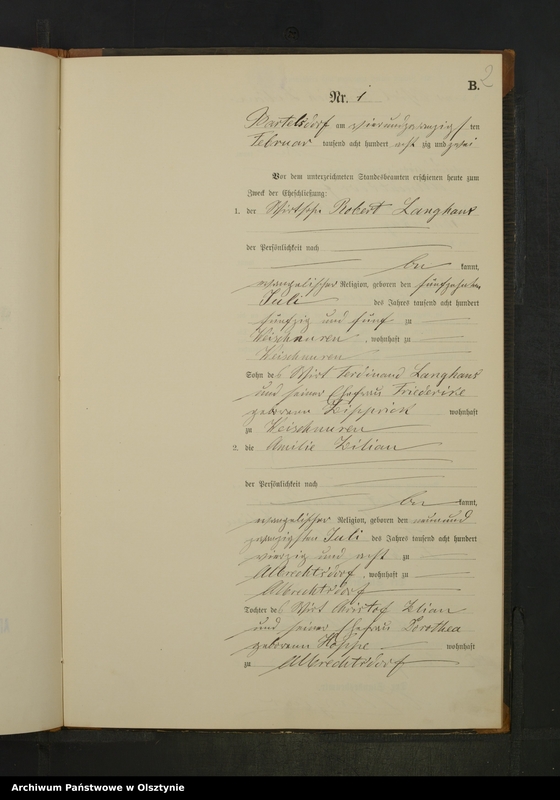 B. 2
Nr. 1
Bartelsdorf am vierundzwanzigsten
Februar tausend acht hundert acht zig und zwei
Vor dem unterzeichneten Standesbeamten erschienen heute zum
Zweck der Eheschließung:
1. der Wirtssohn Robert Langhans
der Persönlichkeit nach
be kannt,
evangelischer Religion, geboren den fünfzehnten
Juli des Jahres tausend acht hundert
fünfzig und fünf zu
, wohnhaft zu
Sohn des Wirt Ferdinand Langhans
und seiner Ehefrau Friederike
geborenen wohnhaft
zu
2. die Amilie Zilian
der Persönlichkeit nach
be kannt,
evangelischer Religion, geboren den neunund
zwanzigsten Juli des Jahres tausend acht hundert
vierzig und acht zu
Albrechtsdorf, wohnhaft zu
Albrechtsdorf
Tochter des Wirt Zilian
und seiner Ehefrau Dorothea
geborenen Hoppe wohnhaft
zu Albrechtsdorf
Archiwum Państwowe w Olsztynie